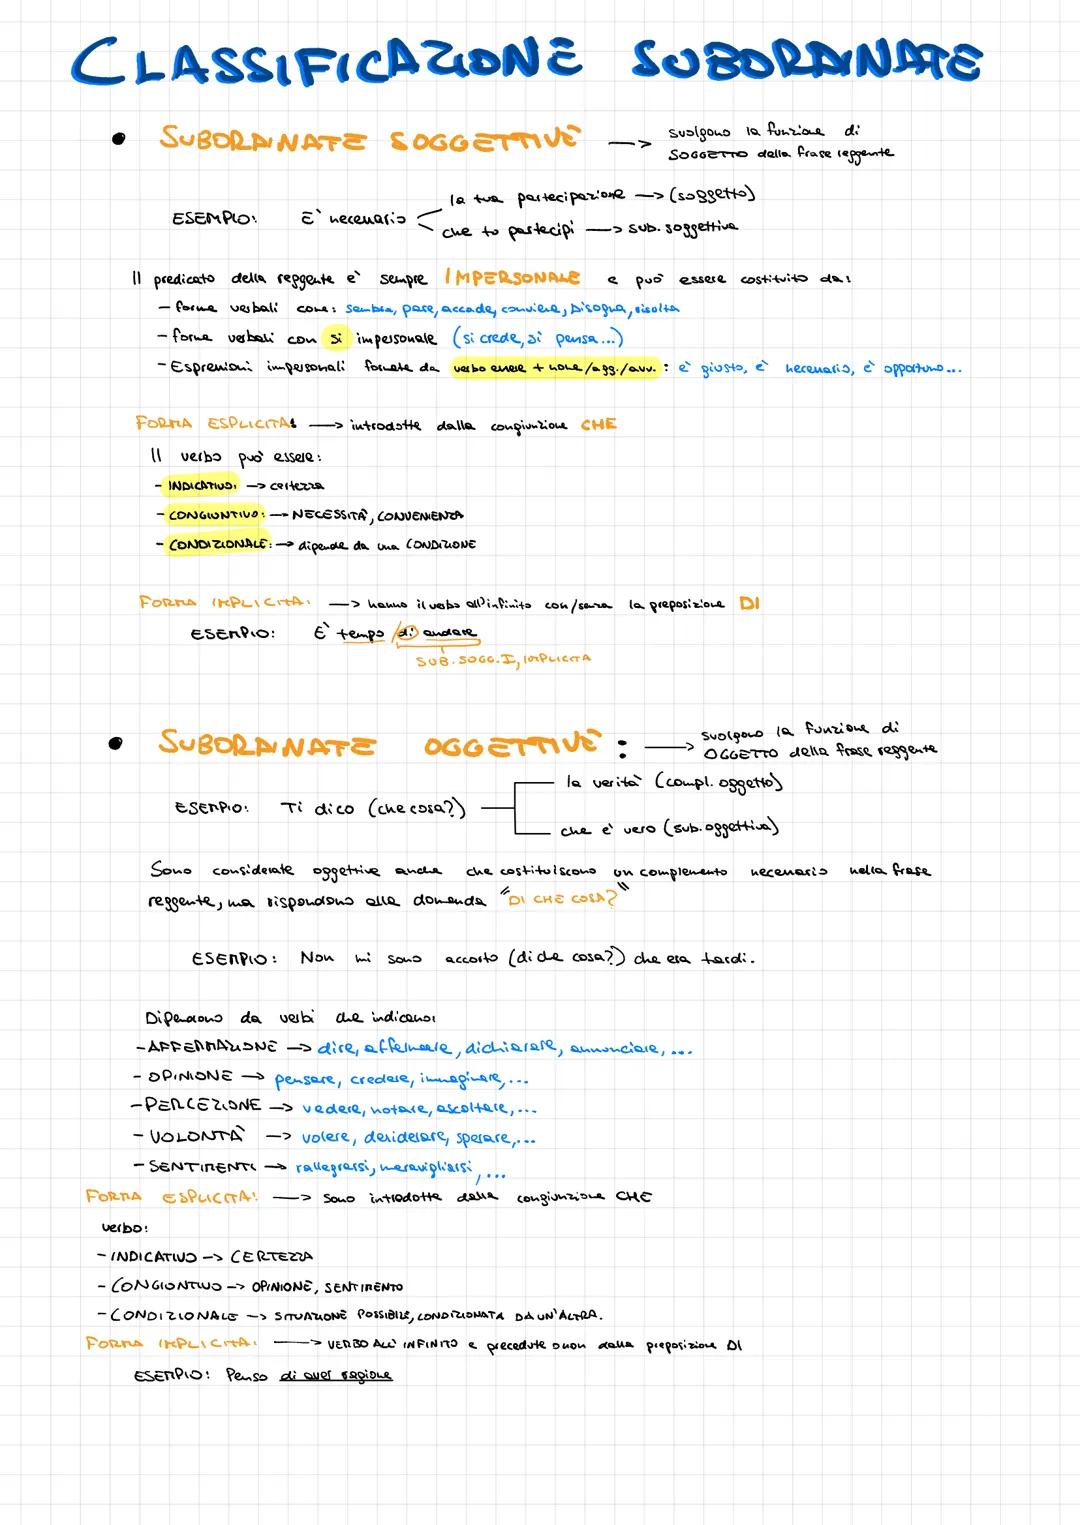 CLASSIFICAZIONE SUBORDINATE
• SUBORDINATE SOGGETTIVE —> svolgono la funzione di
SOGGETTO della frase reggente
la tua partecipazione —> (soggetto)
ESEMPIO: E' necessario <
che tu partecipi —> sub. soggettiva
Il predicato della reggente e' sempre IMPERSONALE e puo' essere costituito da:
- forme verbali come: sembra, pare, accade, conviene, bisogna, risulta
- forme verbali con si impersonale (si crede, si pensa...)
- Espressioni impersonali formate da verbo essere + nome/agg./avv. : e' giusto, e' necessario, e' opportuno...
FORMA ESPLICITA: —> introdotte dalla congiunzione CHE
Il verbo puo' essere:
- INDICATIVO: —> certezza
- CONGIUNTIVO: —> NECESSITA', CONVENIENZA
- CONDIZIONALE: —> dipende da una CONDIZIONE
FORMA IMPLICITA: —> hanno il verbo all'infinito con/senza la preposizione DI
ESEMPIO: E' tempo / di andare
SUB. SOGG. I, IMPLICITA
• SUBORDINATE OGGETTIVE : —> svolgono la funzione di
OGGETTO della frase reggente
la verita' (compl. oggetto)
ESEMPIO: Ti dico (che cosa?)
che e' vero (sub. oggettiva)
Sono considerate oggettive anche che costituiscono un complemento necessario nella frase
reggente, ma rispondono alla domanda "DI CHE COSA?"
ESEMPIO: Non mi sono accorto (di che cosa?) che era tardi.
Dipendono da verbi che indicano:
- AFFERMAZIONE —> dire, affermare, dichiarare, annunciare, ...
- OPINIONE —> pensare, credere, immaginare, ...
- PERCEZIONE —> vedere, notare, ascoltare, ...
- VOLONTA' —> volere, desiderare, sperare, ...
- SENTIMENTI —> rallegrarsi, meravigliarsi, ...
FORMA ESPLICITA: —> sono introdotte dalla congiunzione CHE
verbo:
- INDICATIVO —> CERTEZZA
- CONGIONTIVO —> OPINIONE, SENTIMENTO
- CONDIZIONALE —> SITUAZIONE POSSIBILE, CONDIZIONATA DA UN'ALTRA.
FORMA IMPLICITA: —> VERBO ALL'INFINITO e precedute o non dalla preposizione DI
ESEMPIO: Penso di aver ragione